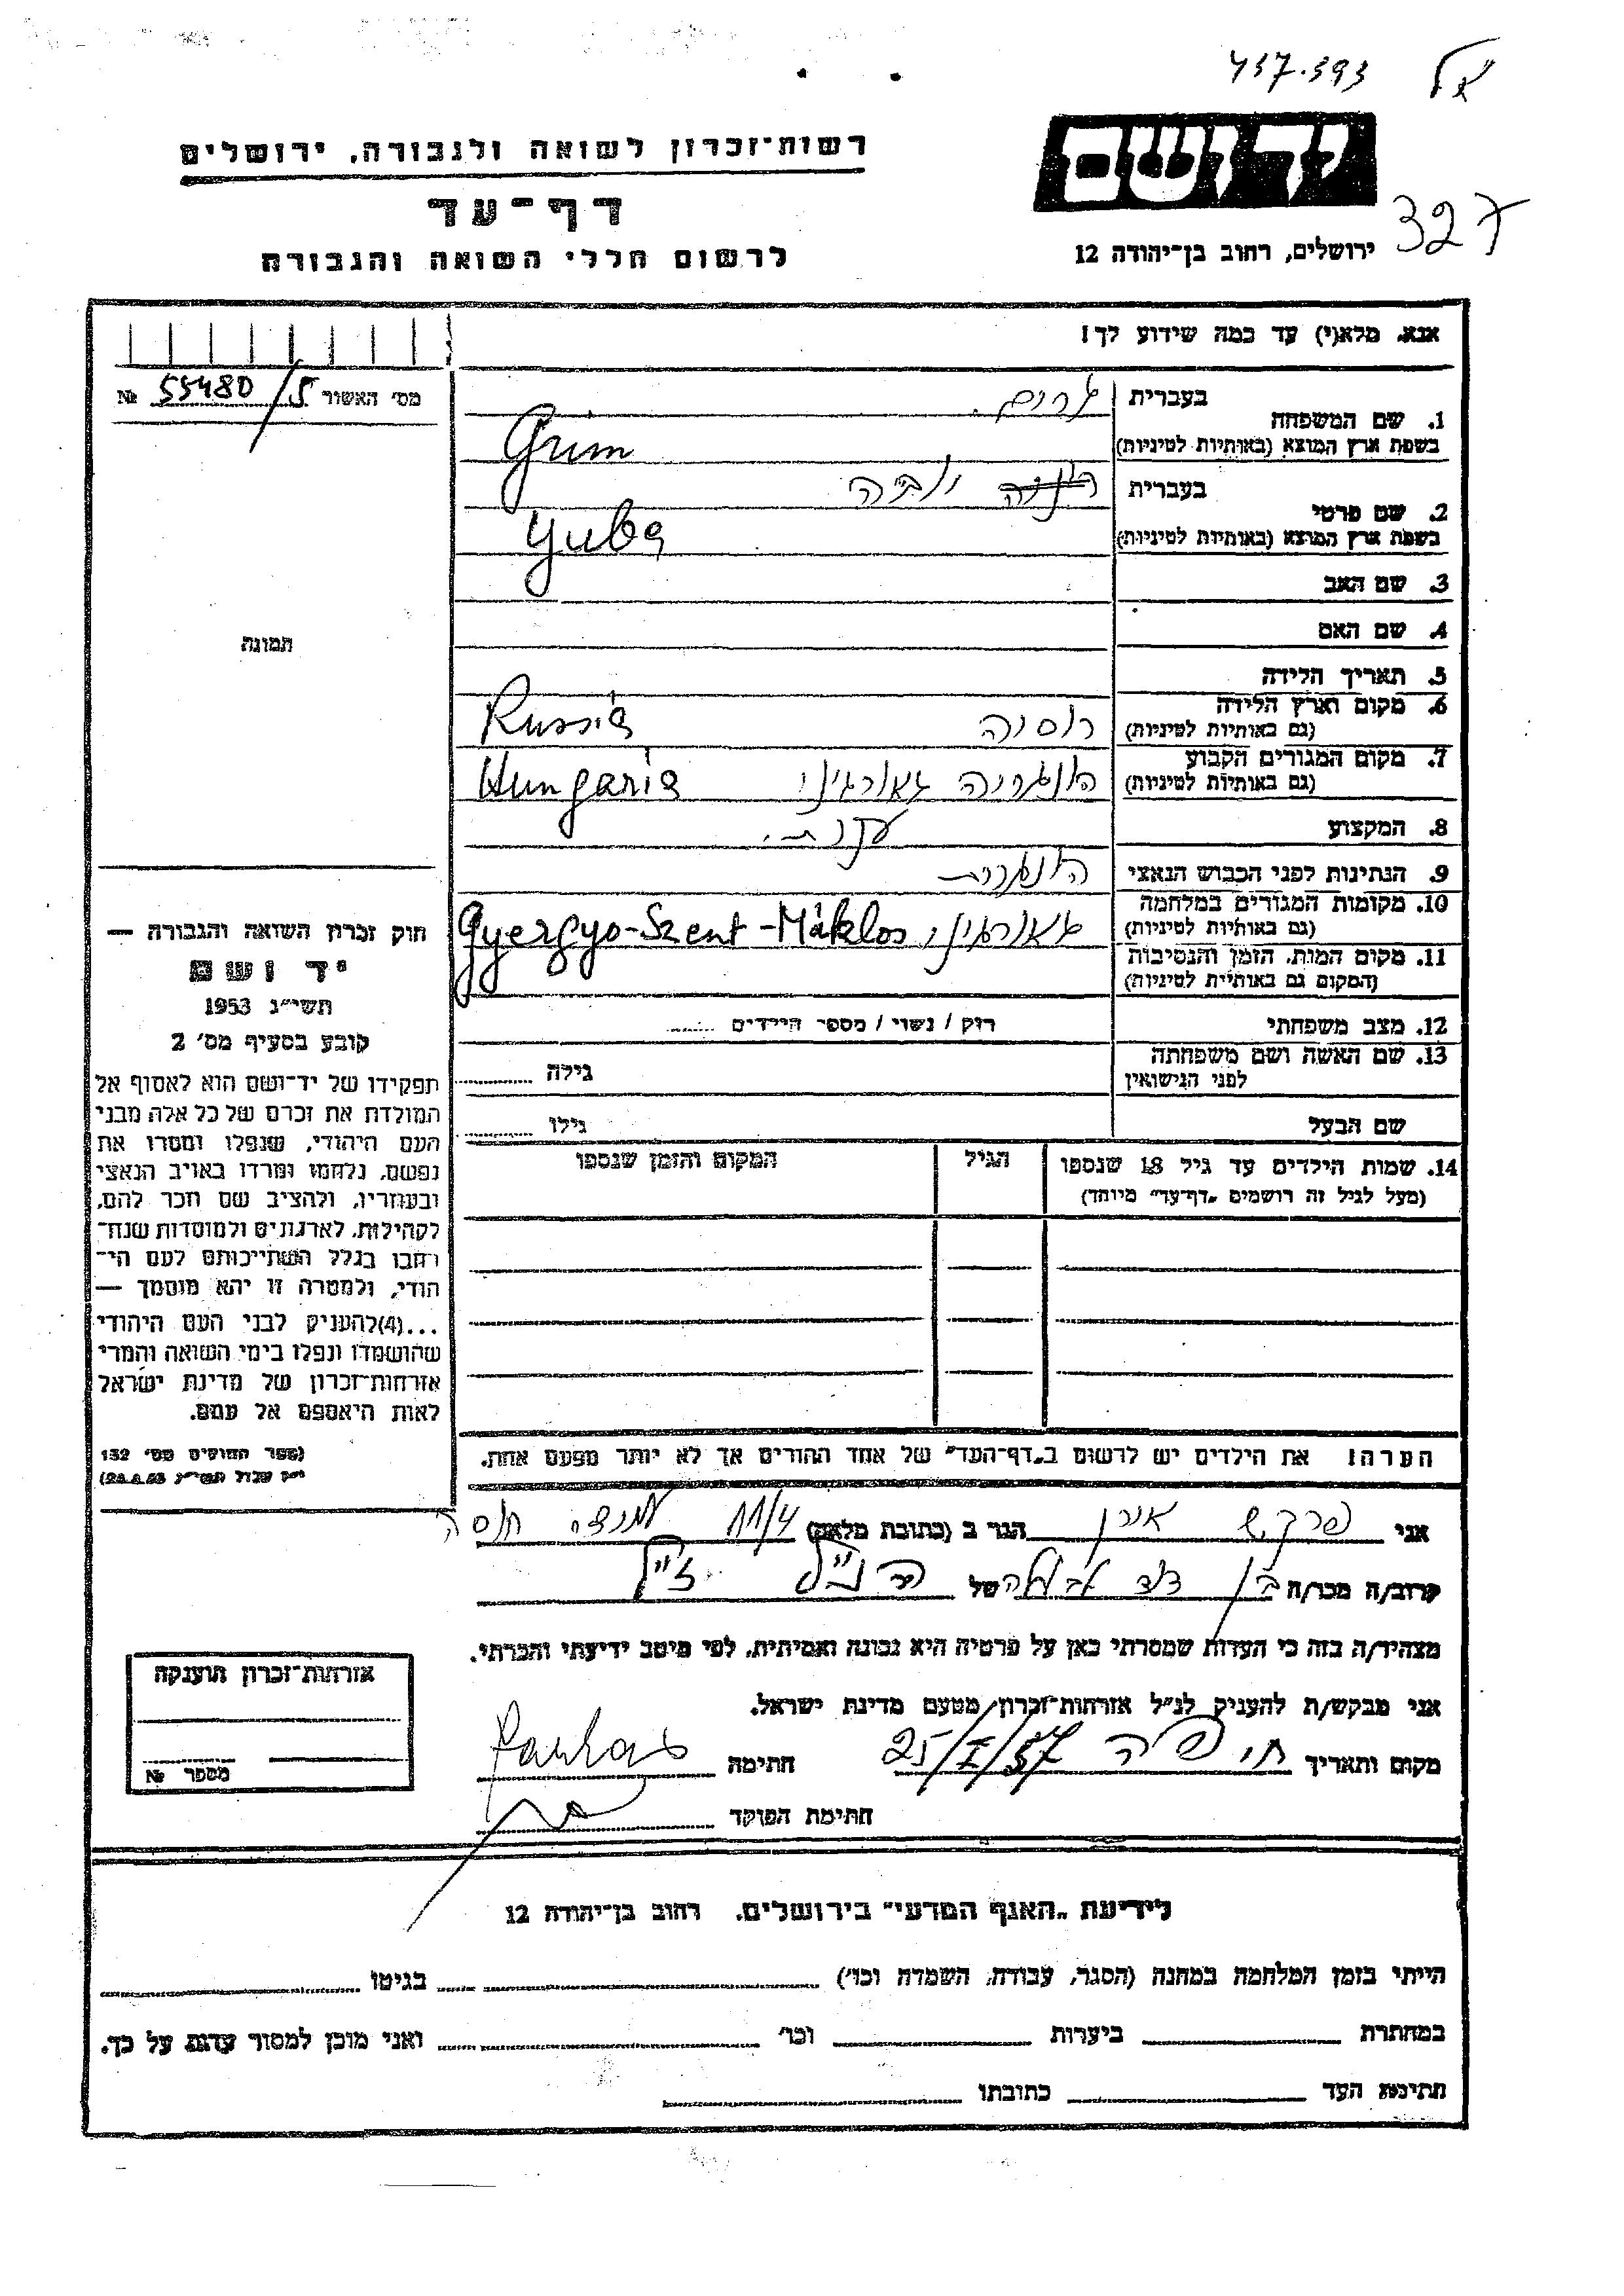 437.393
רשות־זכרון לשואה ולגבורה, ירושלים
יד ושם
327
דף־עד
לרשום חללי השואה והגבורה
ירושלים, רחוב בן־יהודה 12
אנא, מלא(י) עד כמה שידוע לך!
מס׳ האשור 55480/5 №
1. שם המשפחה
בעברית גרים
בשפת ארץ המוצא (באותיות לטיניות) Grüm
2. שם פרטי
בעברית יובה
בשפת ארץ המוצא (באותיות לטיניות) Yuba
3. שם האב
4. שם האם
תמונה
5. תאריך הלידה
6. מקום וארץ הלידה
(גם באותיות לטיניות) רוסיה Russia
7. מקום המגורים הקבוע
(גם באותיות לטיניות) הונגריה Hungaria
8. המקצוע
9. הנתינות לפני הכבוש הנאצי הונגרית
10. מקומות המגורים במלחמה
(גם באותיות לטיניות) Gyergyo-Szent-Máklos
11. מקום המות, הזמן והנסיבות
(המקום גם באותיות לטיניות)
12. מצב משפחתי רוק / נשוי / מספר הילדים
13. שם האשה ושם משפחתה
לפני הנישואין גילה
שם הבעל גילו
14. שמות הילדים עד גיל 18 שנספו הגיל המקום והזמן שנספו
(מעל לגיל זה רושמים „דף־עד״ מיוחד)
חוק זכרון השואה והגבורה —
יד ושם
תשי״ג 1953
קובע בסעיף מס׳ 2
תפקידו של יד־ושם הוא לאסוף אל
המולדת את זכרם של כל אלה מבני
העם היהודי, שנפלו ומסרו את
נפשם, נלחמו ומרדו באויב הנאצי
ובעוזריו, ולהציב שם וזכר להם,
לקהילות, לארגונים ולמוסדות שנח־
רבו בגלל השתייכותם לעם הי־
הודי, ולמטרה זו יהא מוסמך —
...(4) להעניק לבני העם היהודי
שהושמדו ונפלו בימי השואה והמרי
אזרחות־זכרון של מדינת ישראל
לאות היאספם אל עמם.
(ספר החוקים מס׳ 132
הערה! את הילדים יש לרשום ב„דף־העד״ של אחד ההורים אך לא יותר מפעם אחת.
אני פרקש הגר ב (כתובת מלאה) 11/4
קרוב/ה מכר/ה בן דוד של הנ״ל ז״ל
מצהיר/ה בזה כי העדות שמסרתי כאן על פרטיה היא נכונה ואמיתית, לפי מיטב ידיעתי והכרתי.
אני מבקש/ת להעניק לנ״ל אזרחות־זכרון מטעם מדינת ישראל.
מקום ותאריך חיפה 25/I/57 חתימה Farkas
חתימת הפוקד
אזרחות־זכרון הוענקה
מספר №
לידיעת „האגף המדעי״ בירושלים, רחוב בן־יהודה 12
הייתי בזמן המלחמה במחנה (הסגר, עבודה, השמדה וכו׳) בגיטו
במחתרת ביערות וכו׳ ואני מוכן למסור עדות על כך.
חתימת העד כתובתו